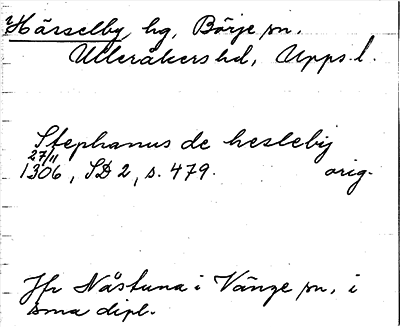 Hässelby, hg, Börje sn.
Ulleråkers hd, Upps. l.
Stephanus de heslebij
27/11
1306, SD 2, s. 479. orig.
Jfr Nåstuna i Vänge sn, i
sma dipl.